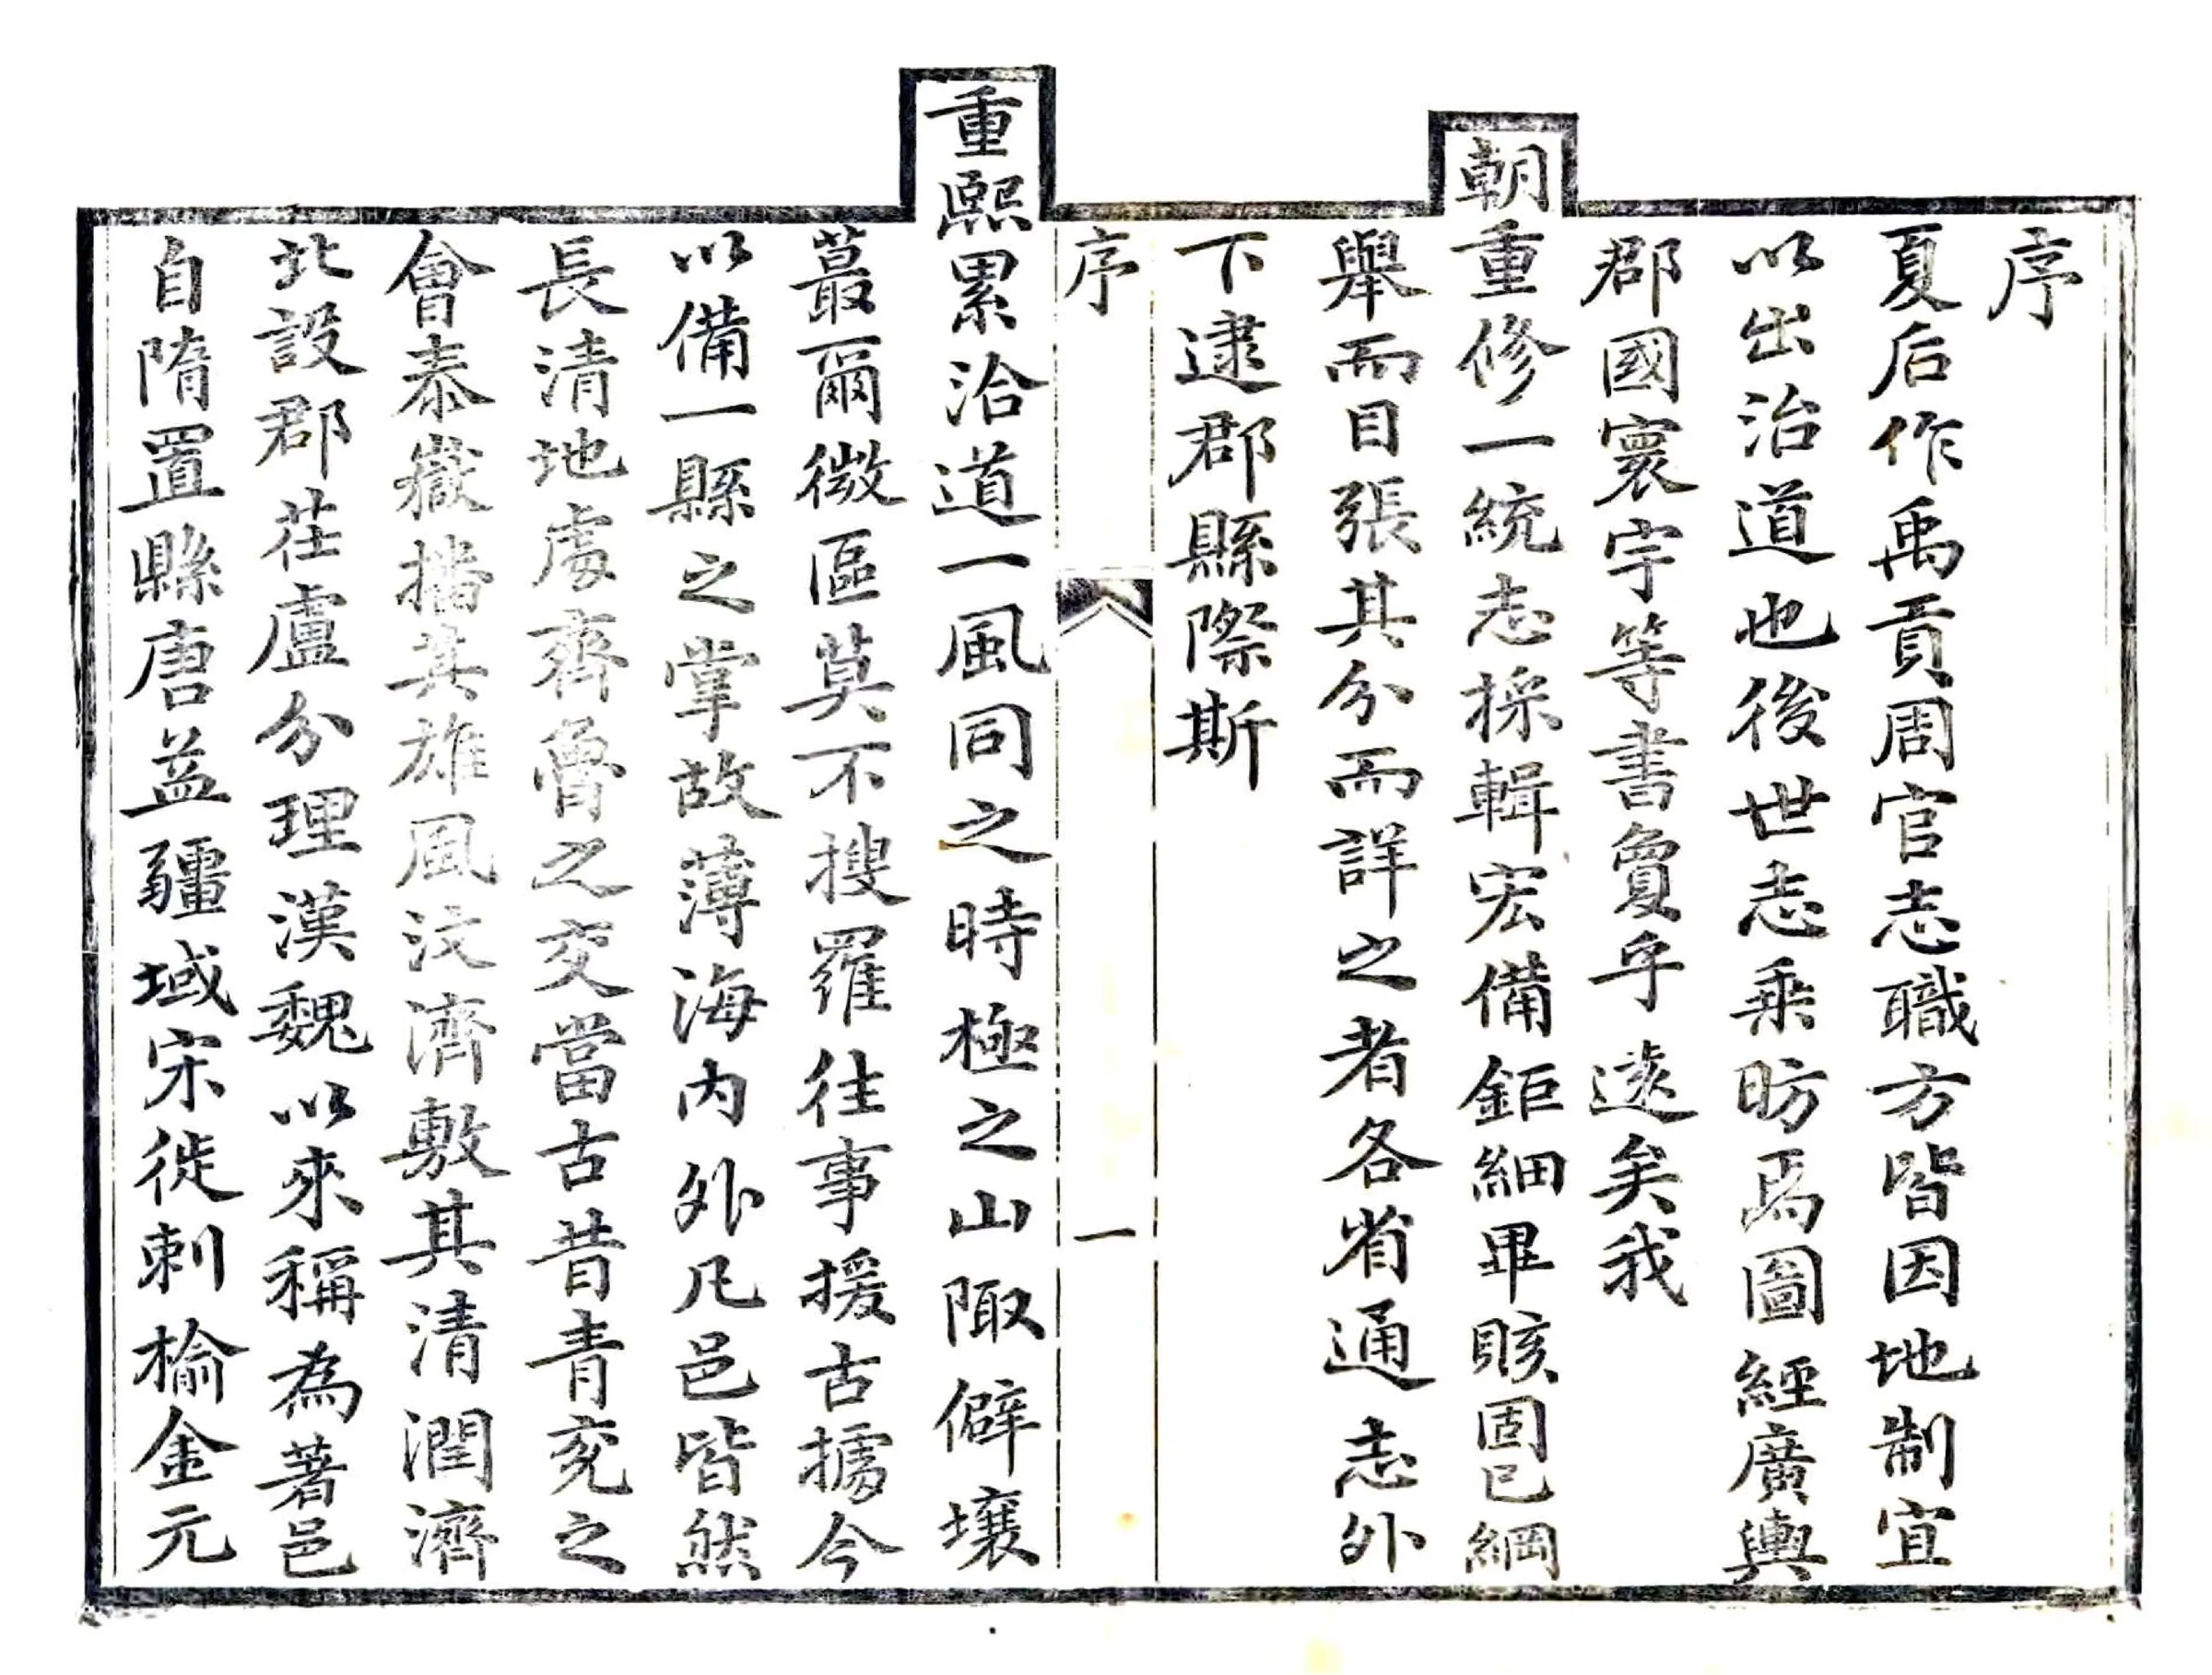 序
夏后作禹貢周官志職方皆因地制宜
以出治道也後世志乘昉焉圖經廣輿
郡國寰宇等書夐乎遠矣我
朝重修一統志採輯宏備鉅細畢賅固已綱
舉而目張其分而詳之者各省通志外
下逮郡縣際斯
序
一
重熙累洽道一風同之時極之山陬僻壤
蕞爾微區莫不搜羅往事援古據今
以備一縣之掌故薄海內外凡邑皆然
長清地處齊魯之交當古昔青兖之
會泰嶽播其雄風汶濟敷其清潤濟
北設郡茌盧分理漢魏以來稱為著邑
自隋置縣唐益疆域宋徙刺榆金元